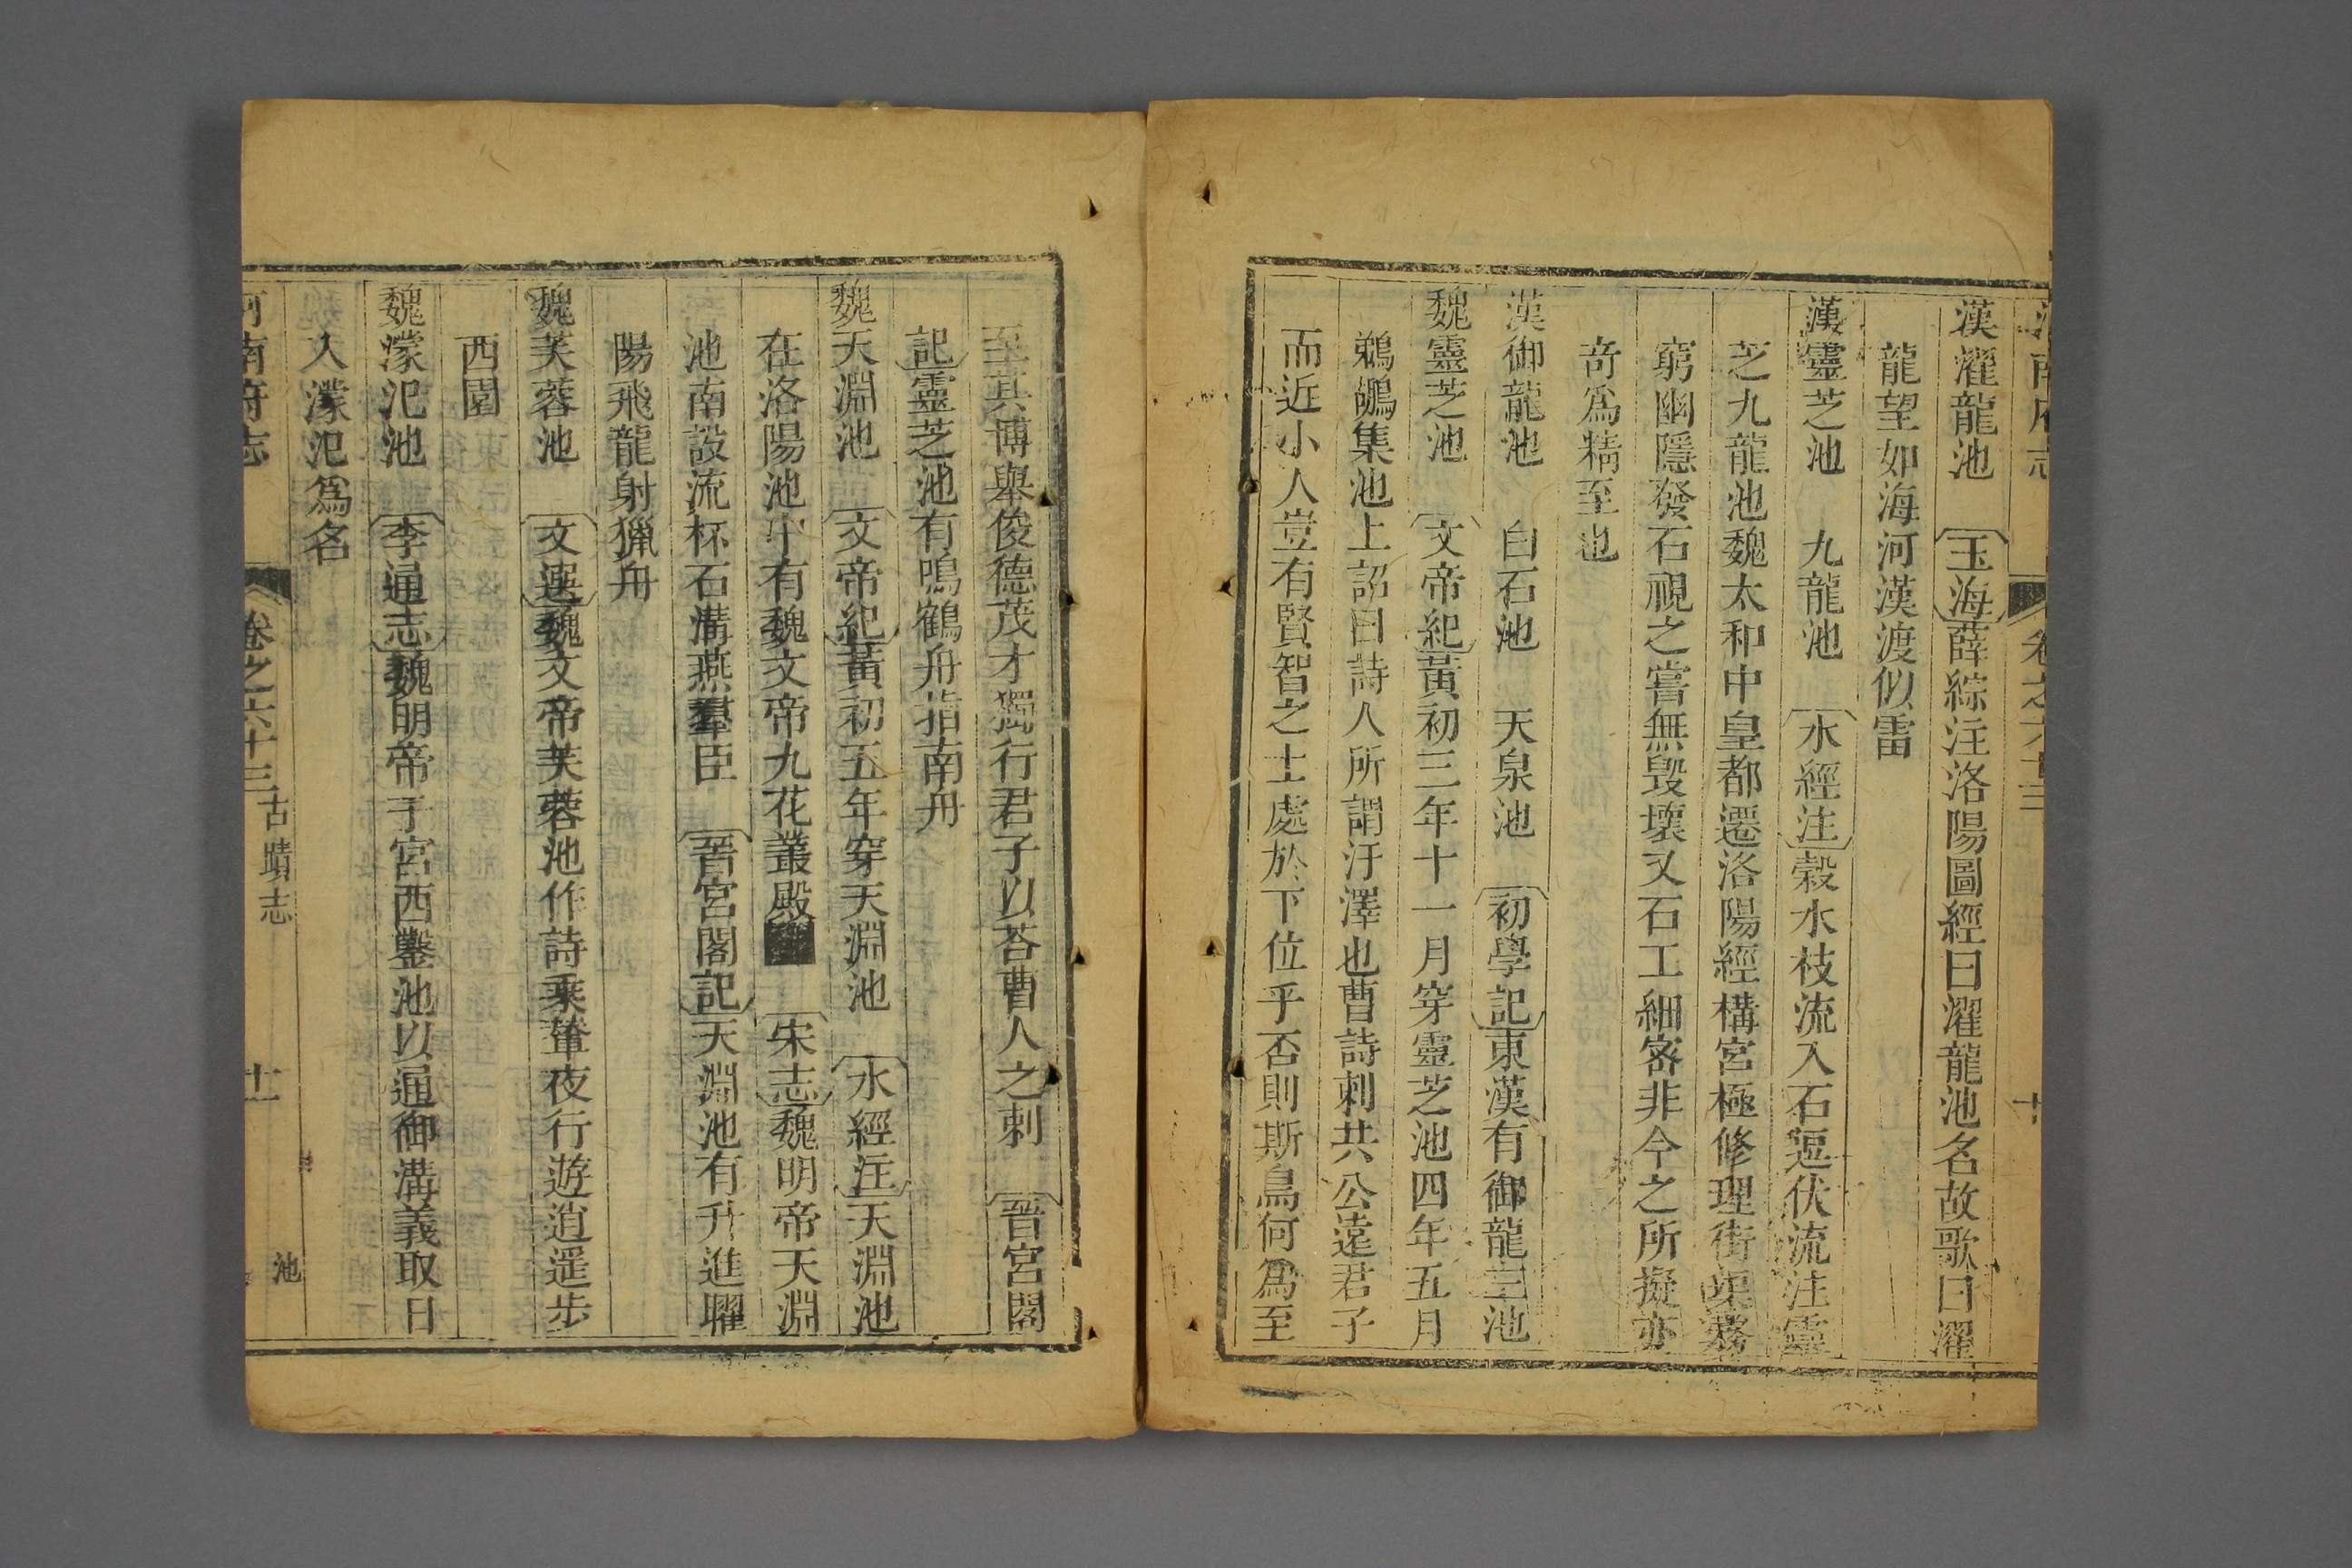 河南府志 卷之六十三 十
漢濯龍池 玉海薛綜注洛陽圖經曰濯龍池名故歌曰濯
龍望如海河漢渡似雷
漢靈芝池 九龍池 水經注穀水枝流入石逗伏流注靈
芝九龍池魏太和中皇都遷洛陽經構宮極修理街渠務
窮幽隱發石視之嘗無毀壞又石工細宻非今之所擬亦
竒爲精至也
漢御龍池 白石池 天泉池 初學記東漢有御龍三池
魏靈芝池 文帝紀黃初三年十一月穿靈芝池四年五月
鵜鶘集池上詔曰詩人所謂汙澤也曹詩刺共公遠君子
而近小人豈有賢智之士處於下位乎否則斯鳥何爲至
至其博舉俊德茂才獨行君子以荅曹人之刺 晉宮閣
記靈芝池有鳴鶴舟指南舟
魏天淵池 文帝紀黃初五年穿天淵池 水經注天淵池
在洛陽池中有魏文帝九花叢殿 宋志魏明帝天淵
池南設流杯石溝燕羣臣 晉宮閣記天淵池有升進曜
陽飛龍射獵舟
魏芙蓉池 文選魏文帝芙蓉池作詩乘輦夜行遊逍遥步
西園
魏濛汜池 李通志魏明帝于宮西鑿池以通御溝義取日
入濛汜爲名
河南府志 卷之六十三 古蹟志 池 十一